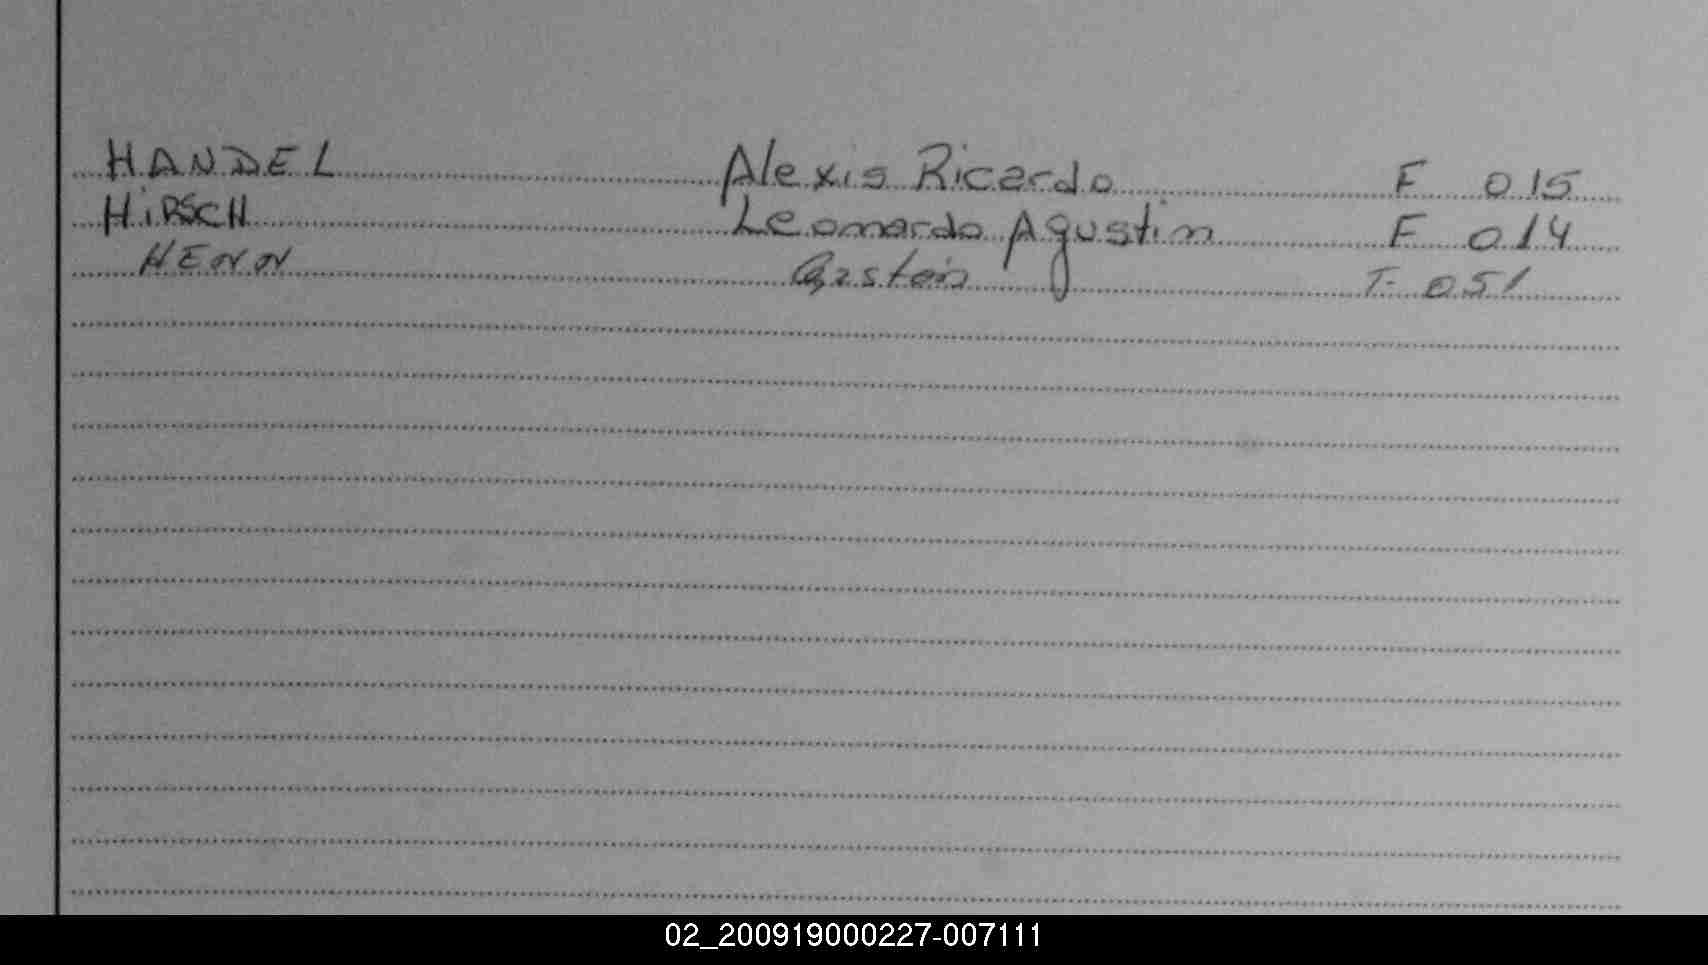 HANDEL Alexis Ricardo F 015
HiRSCH Leonardo Agustin F 014
HENN Gastón T- 051
02_200919000227-007111